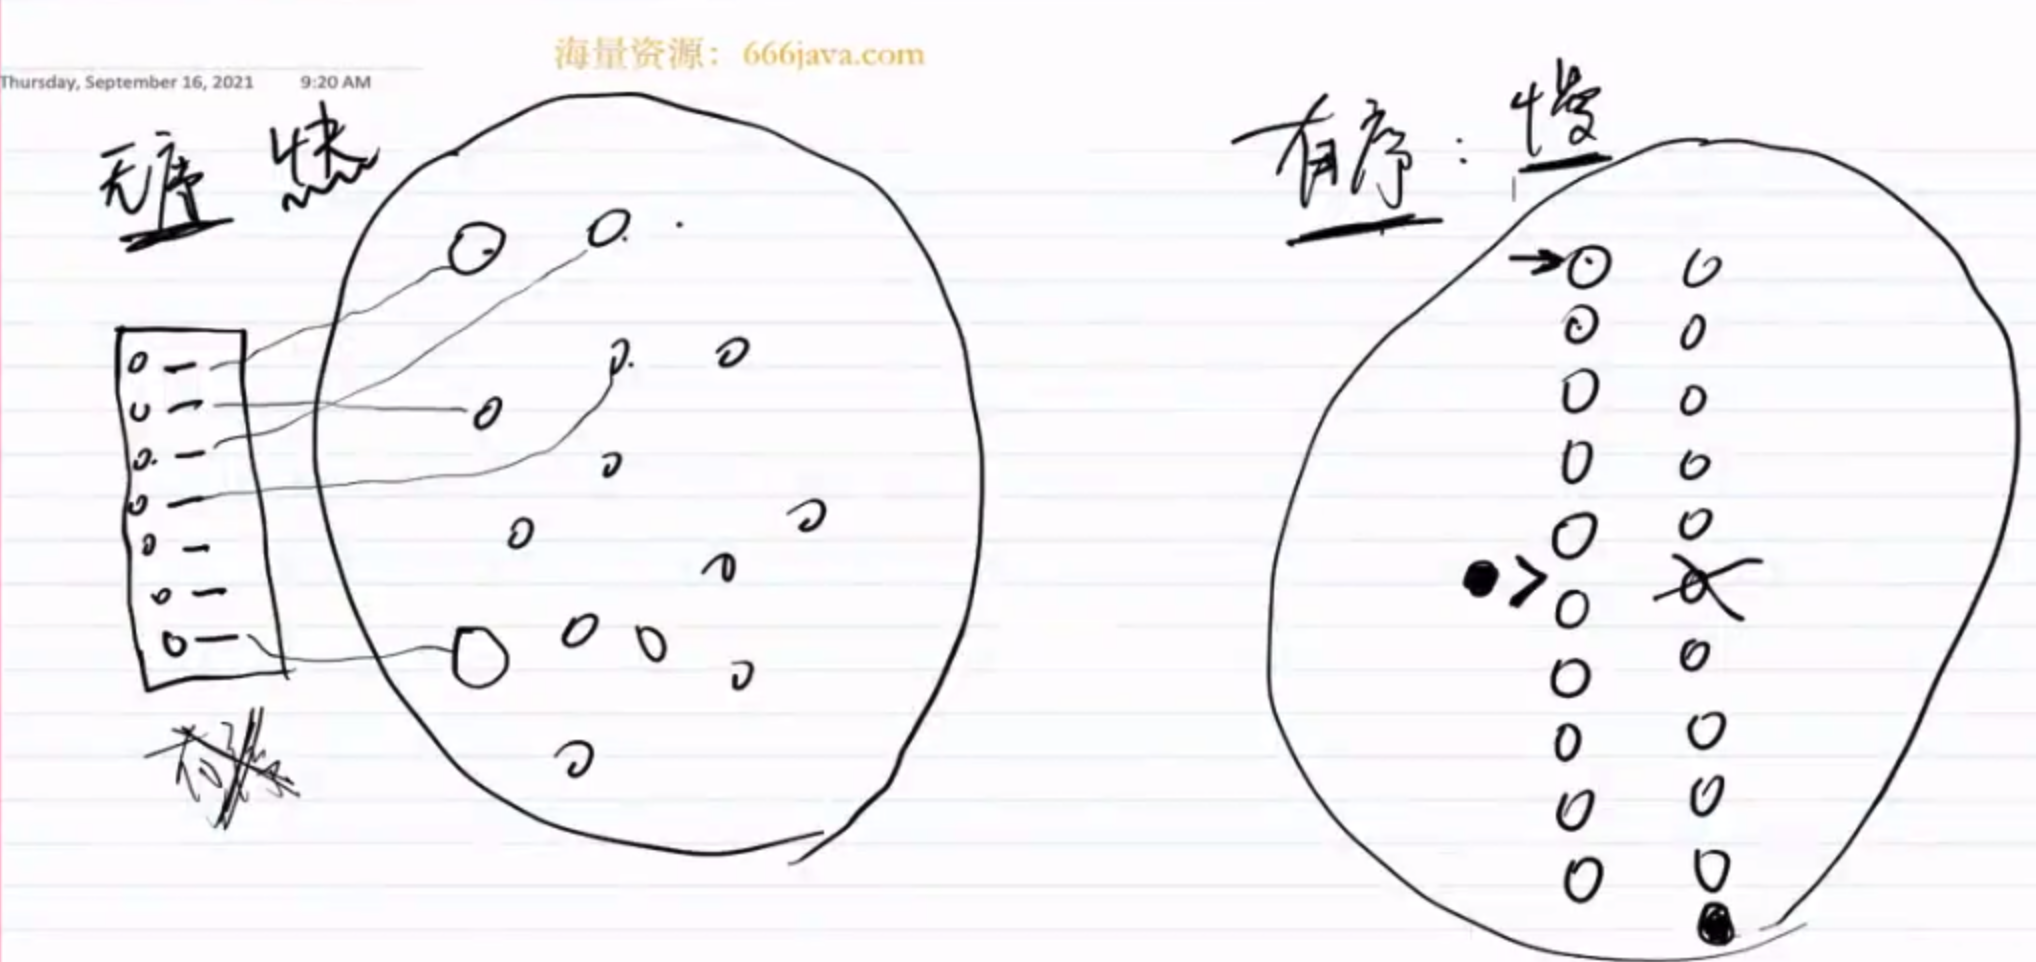 海量资源：666java.com
Thursday, September 16, 2021 9:20 AM
无序 快
有序：慢